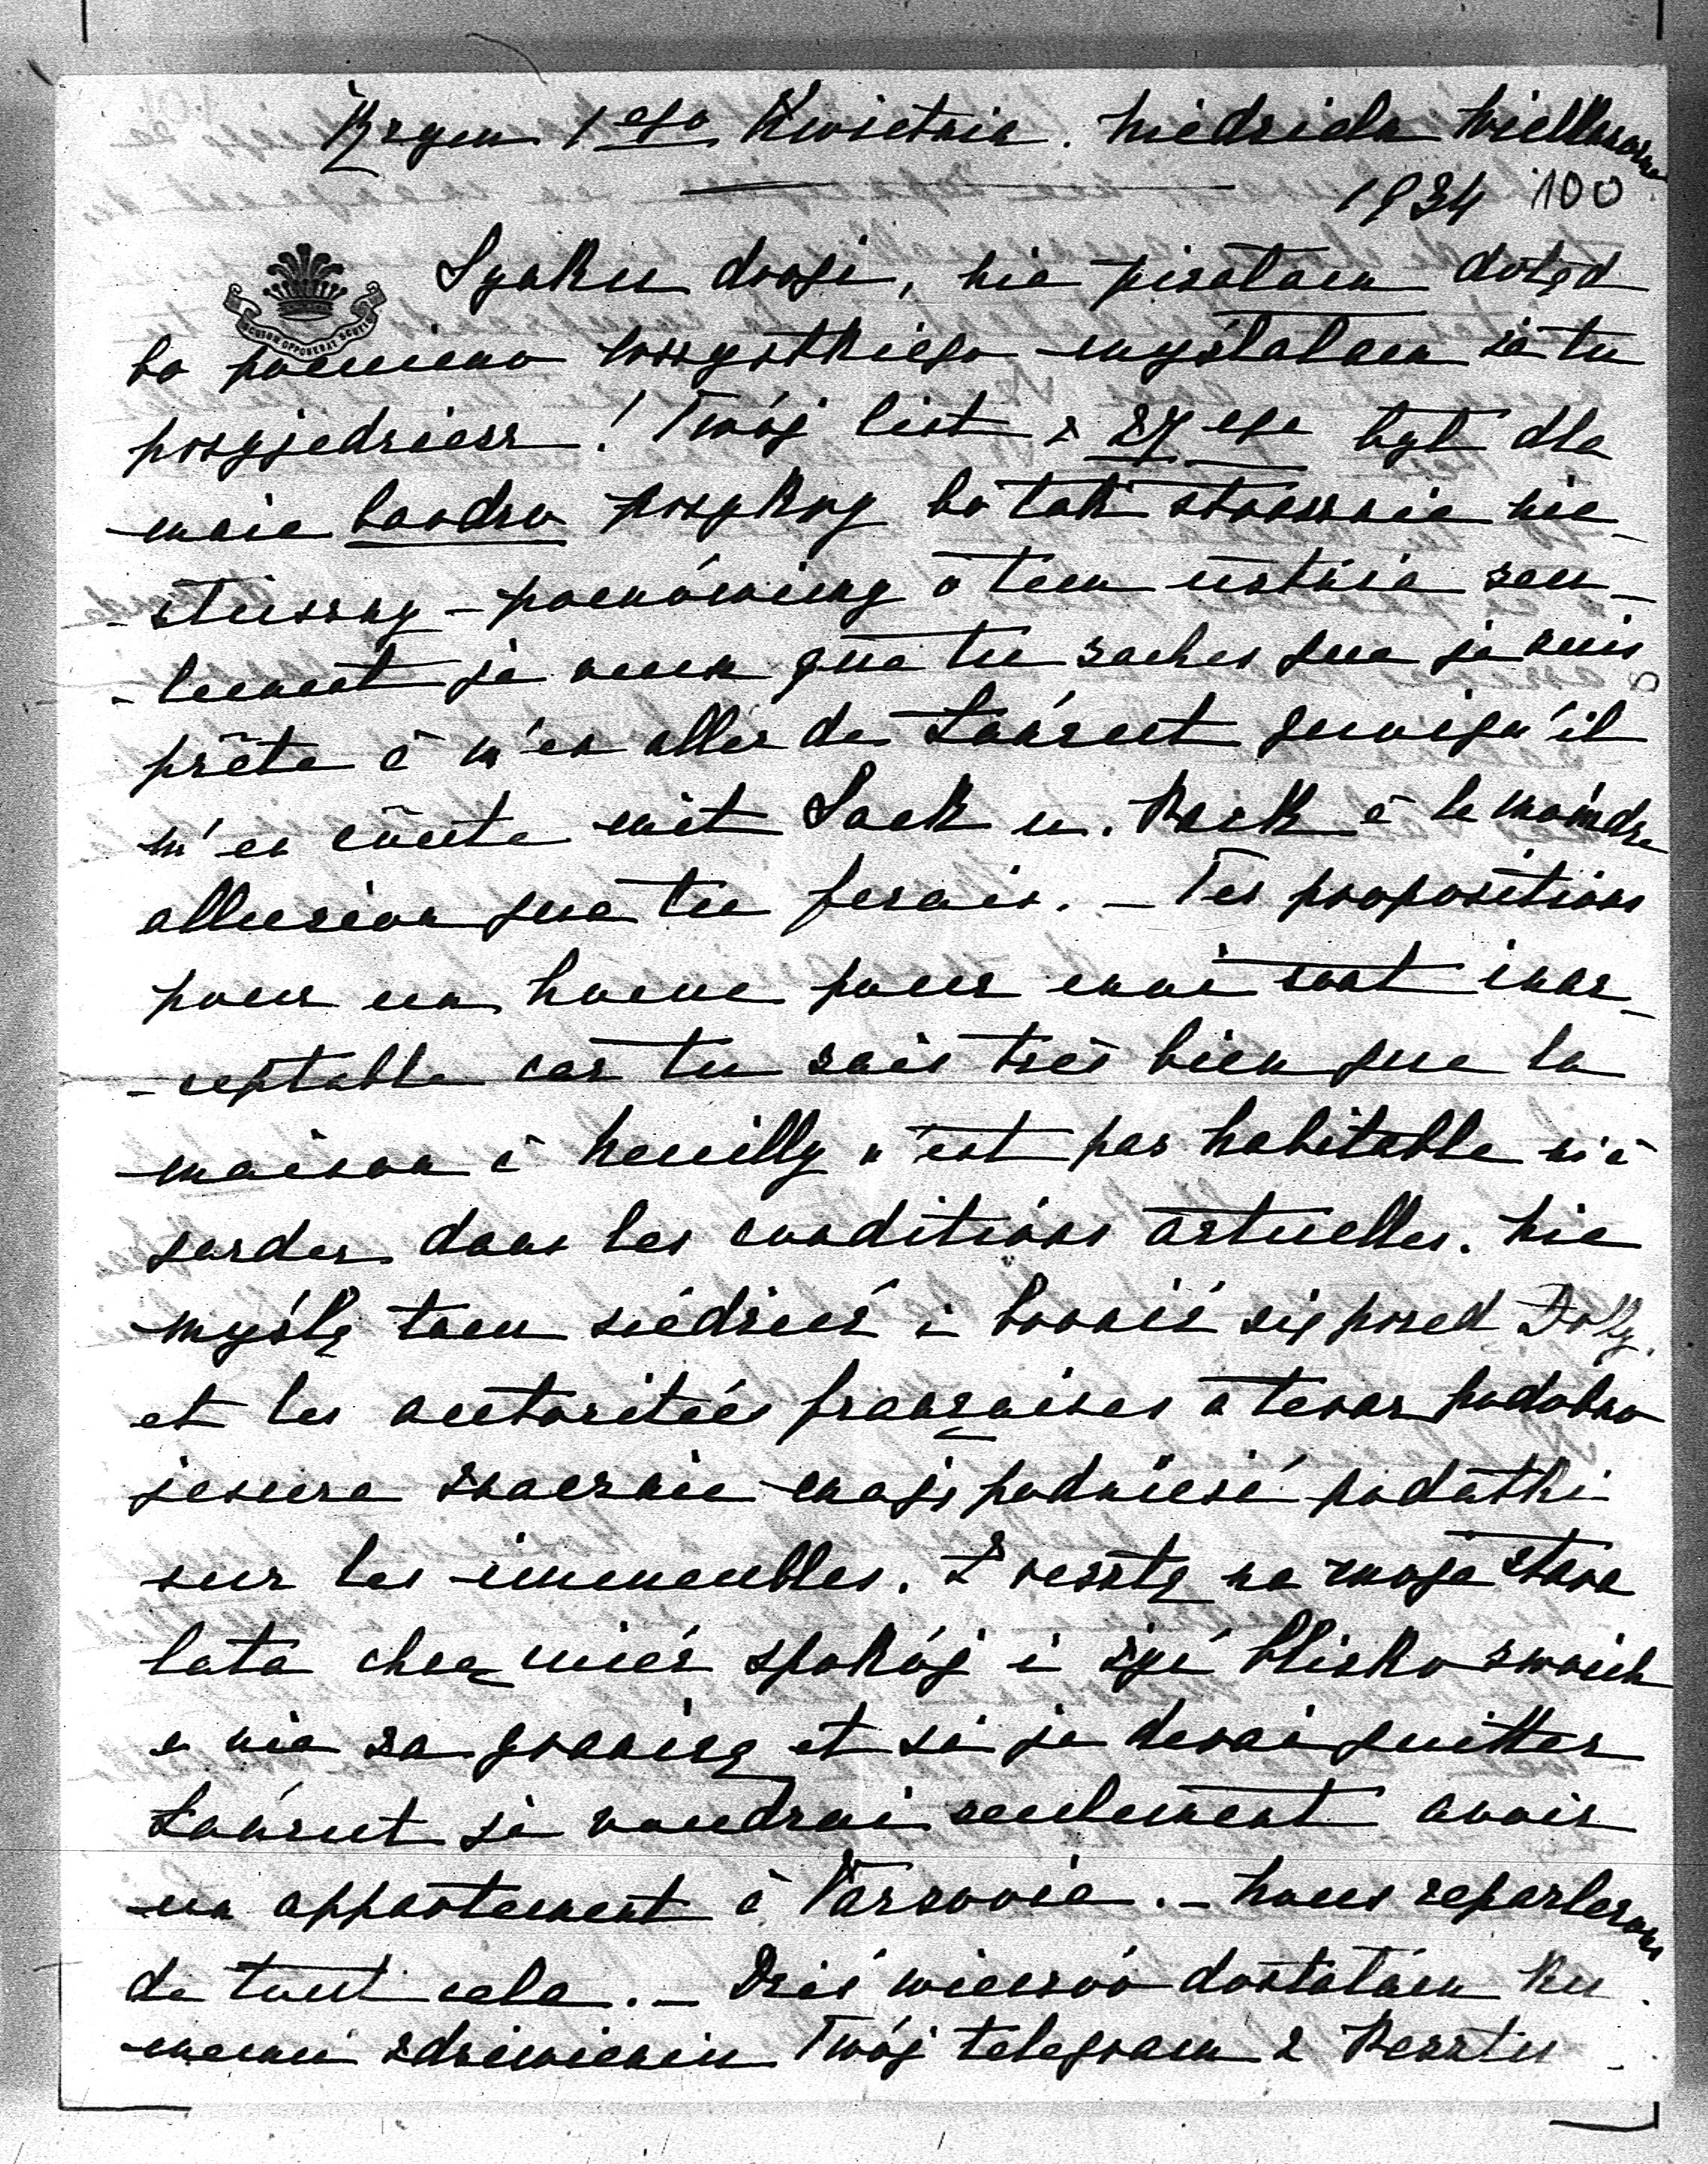 Rzym 1ego Kwietnia. Niedziela Wielkanocna
1934 100
SCUTUM OPPONEBAT SCUTIS
Synku drogi, nie pisałam dotąd
bo pomimo wszystkiego myślałam że tu
przyjedziesz! Twój list z 27ego był dla
mnie bardzo przykry bo tak strasznie nie-
-słuszny - pomówimy o tem ustnie seu-
-lement je veux que tu saches que je suis
prête à m'en aller de Łańcut quoiqu'il
m'en coûte mit Sack u. Pack à la moindre
allusion que tu ferais. - Tes propositions
pour un home pour moi sont inac-
-ceptable car tu sais très bien que la
maison à Neuilly n'est pas habitable ni à
garder dans les conditions actuelles. Nie
myślę tam siedzieć i bronić się przed Dolly
et les autoritées françaises a teraz podobno
jeszcze znacznie mają podnieść podatki
sur les immeubles. Zresztą na moje stare
lata chcę mieć spokój i żyć blisko swoich
a nie za granicą et si je devai quitter
Łańcut je voudrai seulement avoir
un appartement à Varsovie. - Nous reparlerons
de tout cela. - Dziś wieczór dostałam ku
memu zdziwieniu Twój telegram z Pesztu -